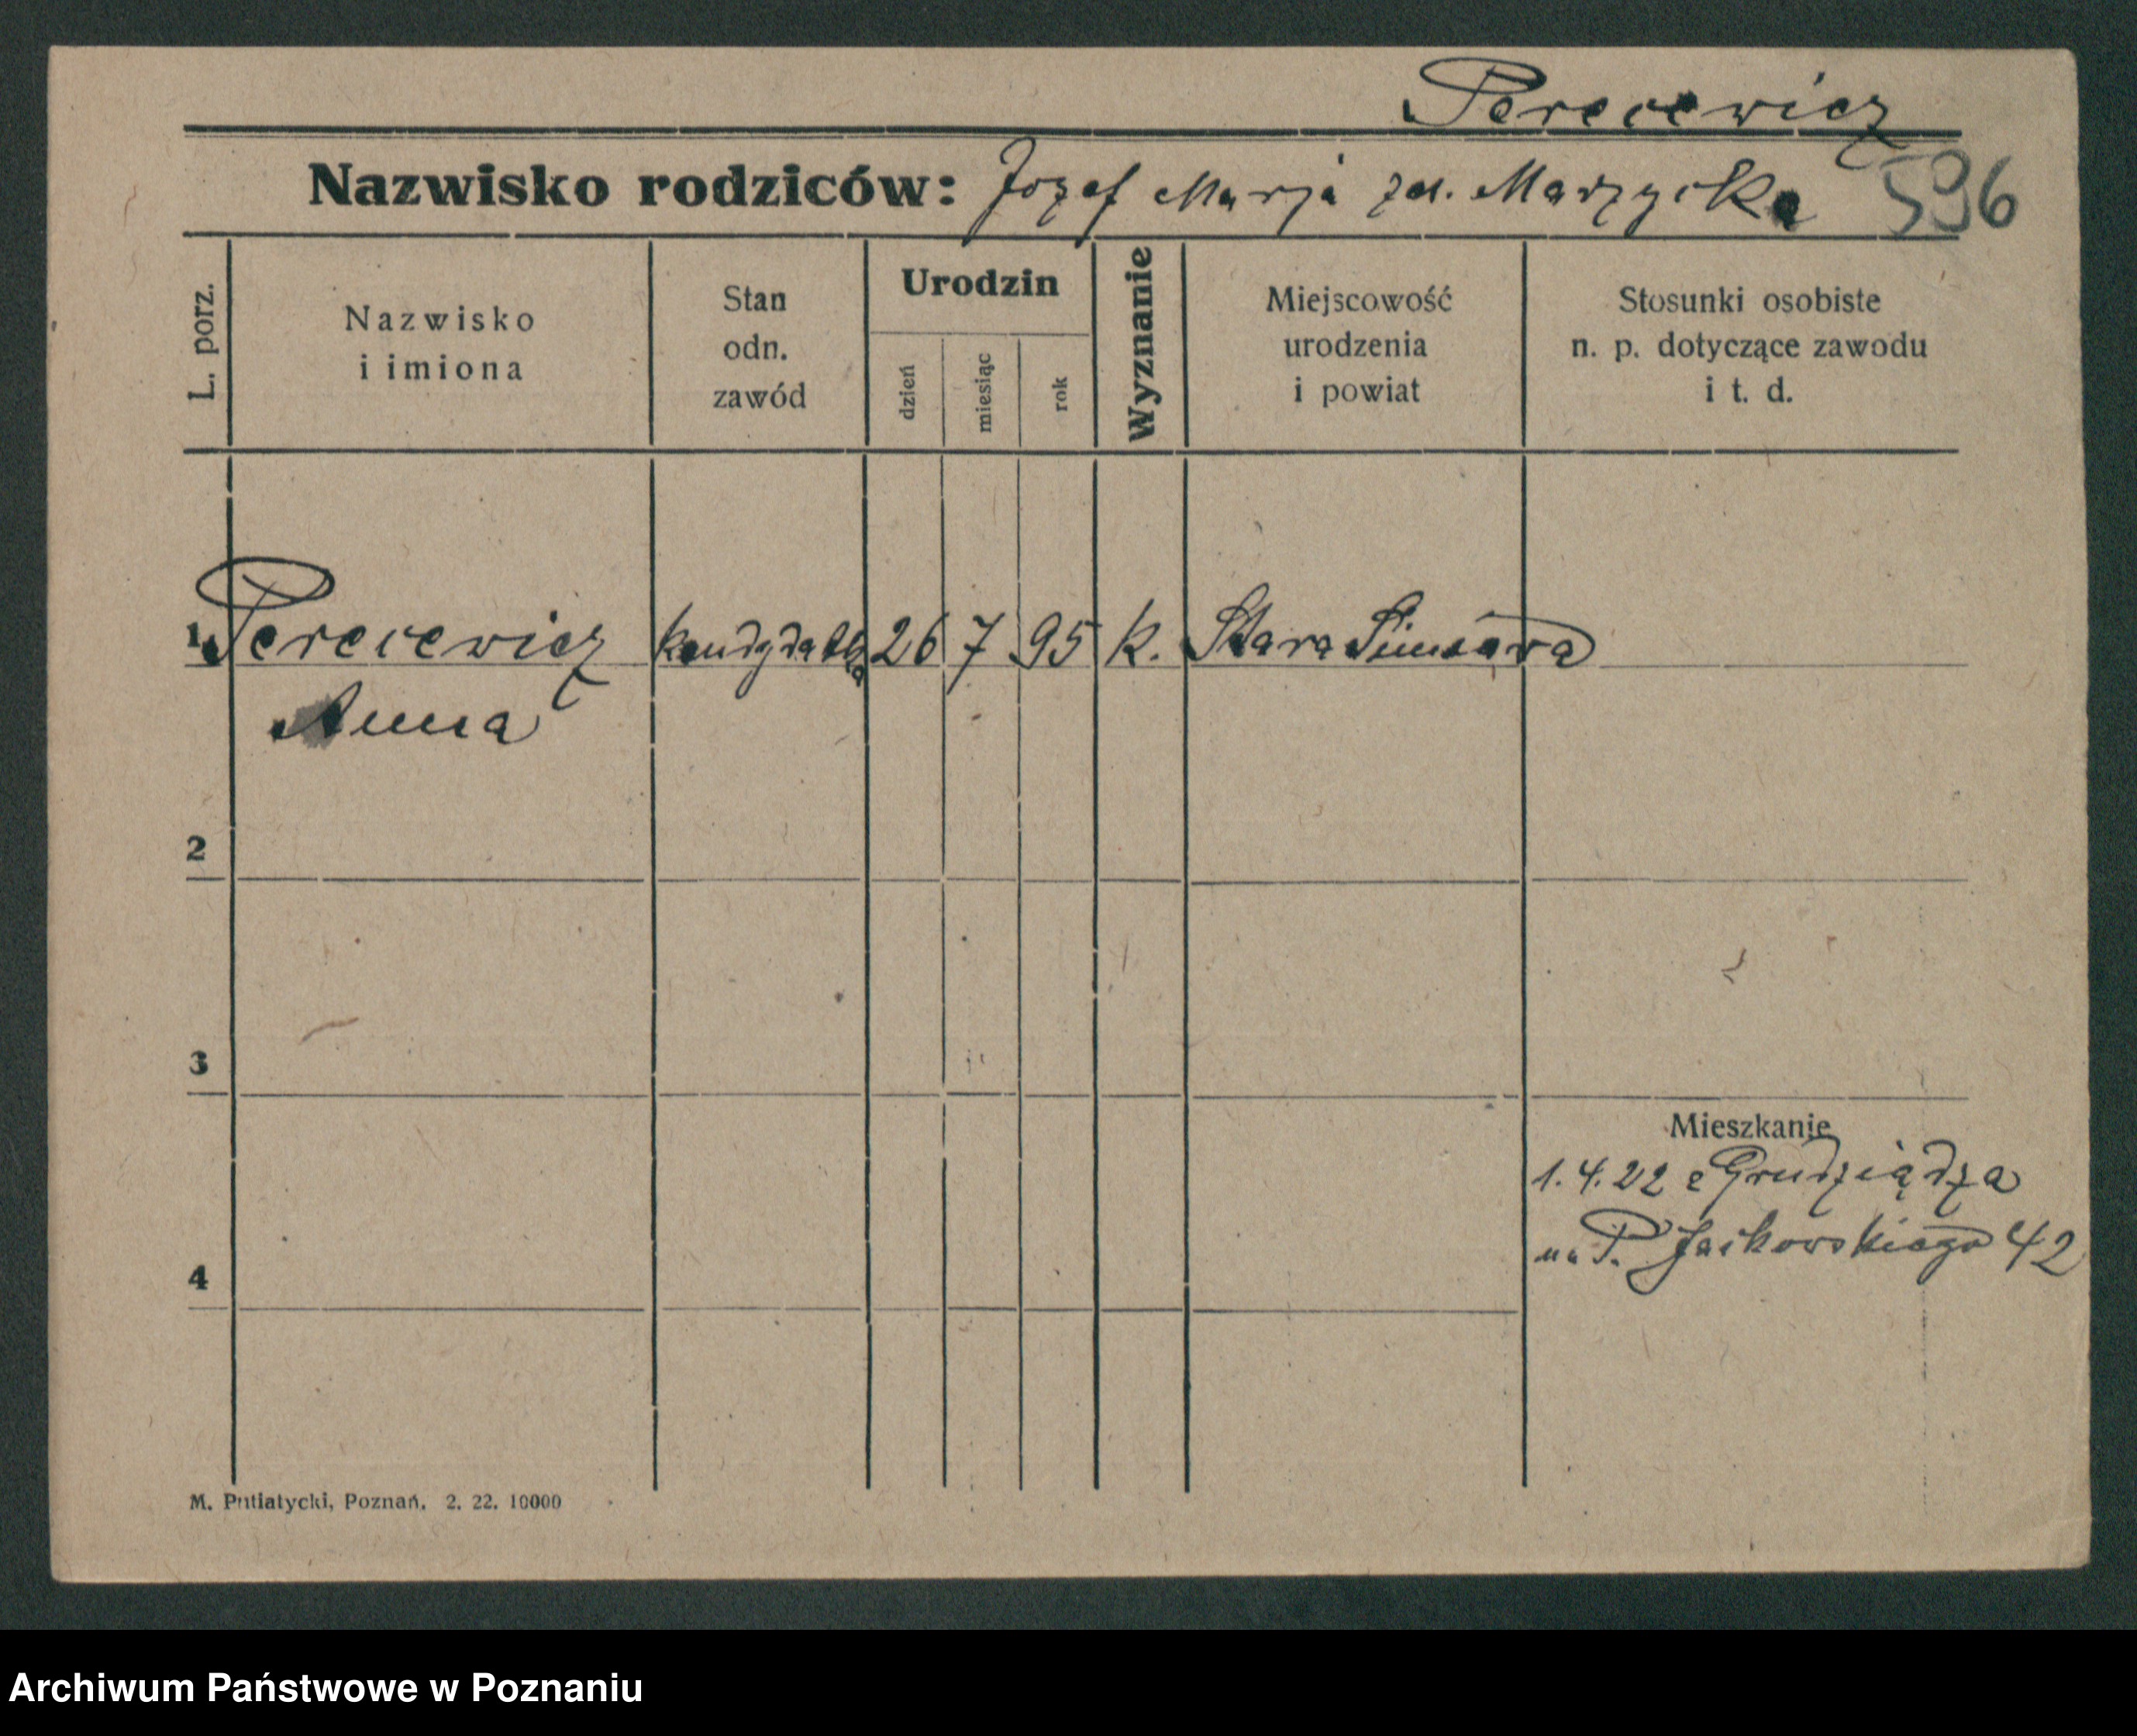 Perecewicz
Nazwisko rodziców: Józef Marja zd. Marzycka 596
L. porz.
Nazwisko
i imiona
Stan
odn.
zawód
Urodzin
dzień
miesiąc
rok
Wyznanie
Miejscowość
urodzenia
i powiat
Stosunki osobiste
n. p. dotyczące zawodu
i t. d.
1 Perecewicz kandydatka 26 7 95 k. Stara
Anna
2
3
4
Mieszkanie
1.4.22 z Grudziądza
na P. Jackowskiego 42
M. Putiatycki, Poznań. 2. 22. 10000
Archiwum Państwowe w Poznaniu